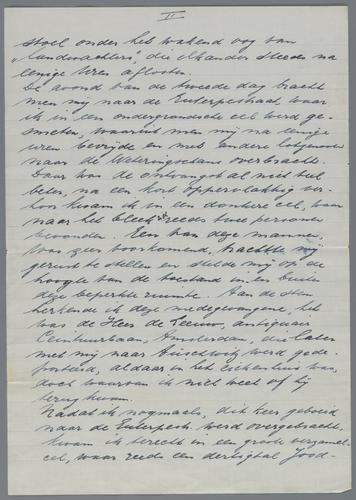 II
stoel onder het wakend oog van
"landwachters", die elkander steeds na
eenige uren aflosten.
De avond van de tweede dag bracht
men mij naar de Euterpestraat, waar
ik in een ondergrondsche cel werd ge-
smeten, waaruit men mij na eenige
uren bevrijde en met andere lotgenooten
naar de Weteringschans overbracht.
Daar was de ontvangst al niet veel
beter, na een kort oppervlakkig ver-
hoor kwam ik in een donkere cel, waar
naar het bleek reeds twee personen
bevonden. Een van deze mannen,
was zeer voorkomend, trachtte mij
gerust te stellen en stelde mij op de
hoogte van de toestand in en buiten
deze beperkte ruimte. Aan de stem
herkende ik deze medegevangene, het
was de Heer de Leeuw, antiquair
Ceintuurbaan, Amsterdam, die later
met mij naar Auschwitz werd gede-
porteerd, aldaar in het ziekenhuis was,
doch waarvan ik niet weet of hij
terug kwam.
Nadat ik nogmaals, dit keer geboeid
naar de Euterpestr. werd overgebracht,
kwam ik terecht in een groote verzamel-
cel, waar reeds een dertigtal Jood-